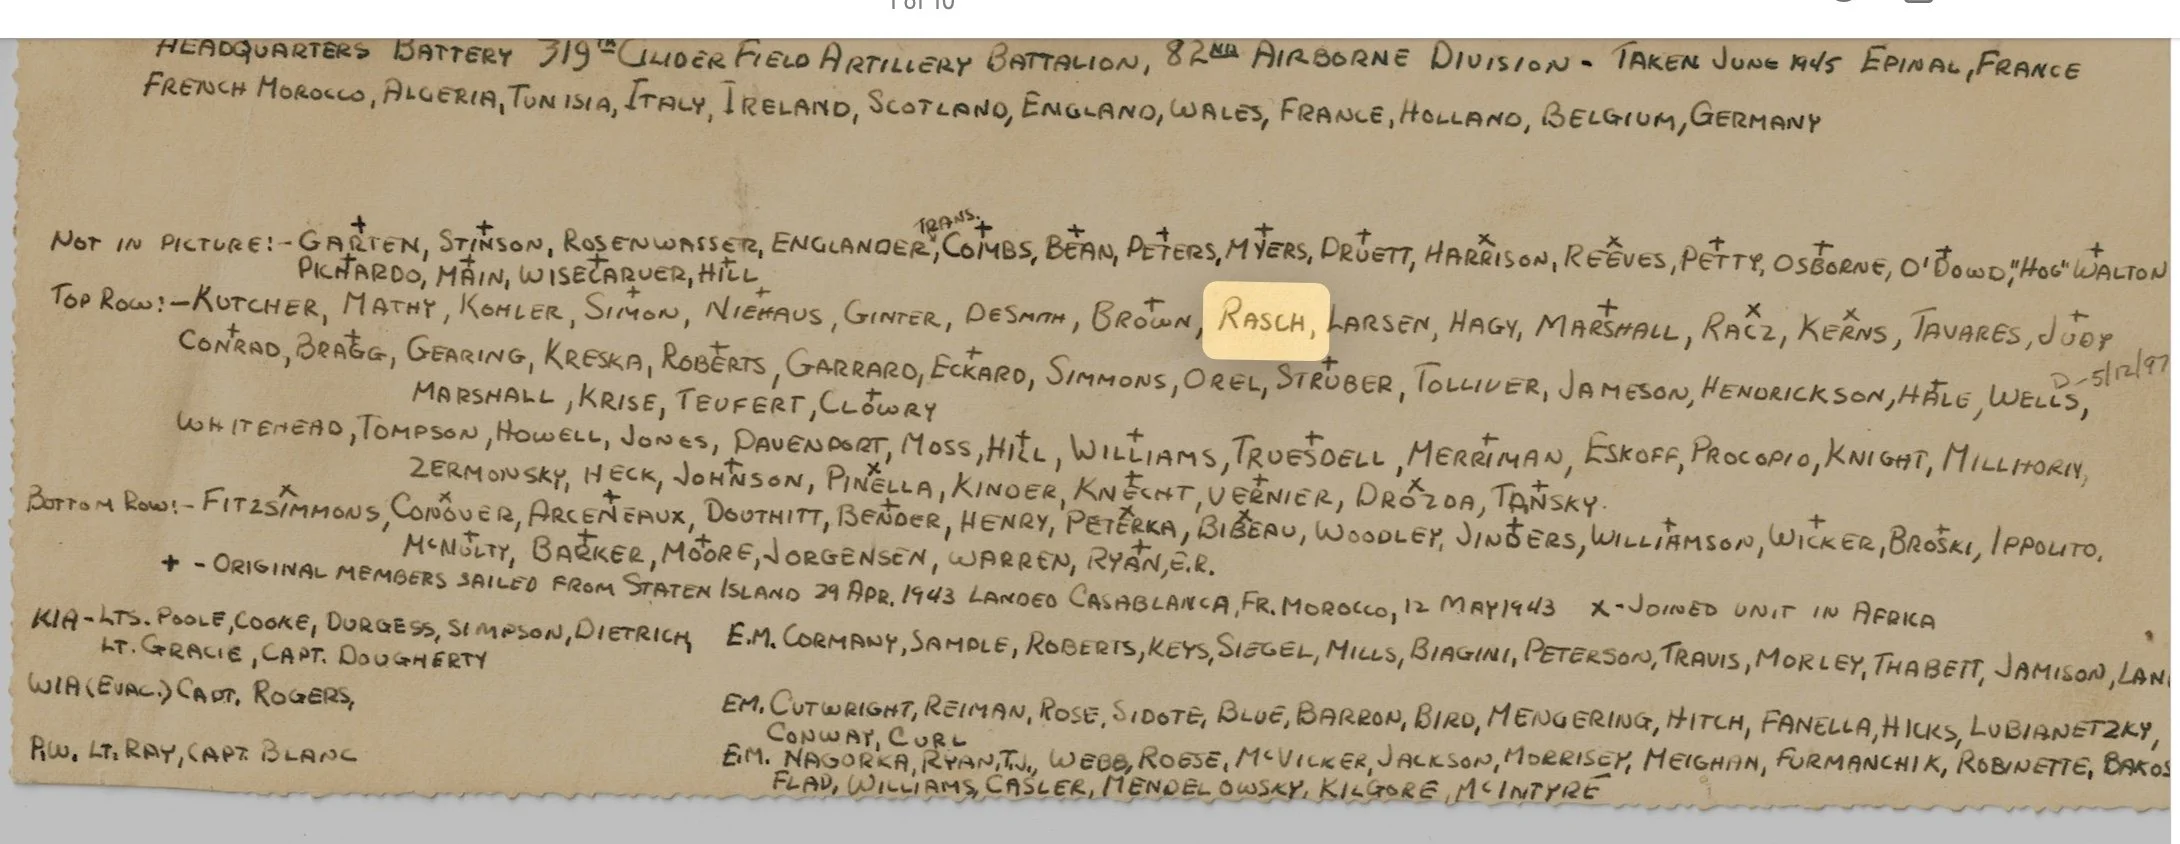 1 of 10
HEADQUARTERS BATTERY 319TH GLIDER FIELD ARTILLERY BATTALION, 82ND AIRBORNE DIVISION - TAKEN JUNE 1945 EPINAL, FRANCE
FRENCH MOROCCO, ALGERIA, TUNISIA, ITALY, IRELAND, SCOTLAND, ENGLAND, WALES, FRANCE, HOLLAND, BELGIUM, GERMANY
TRANS.
NOT IN PICTURE:- GARTEN, STINSON, ROSENWASSER, ENGLANDER, COMBS, BEAN, PETERS, MYERS, DRUETT, HARRISON, REEVES, PETTY, OSBORNE, O'DOWD, "HOG" WALTON
PICHARDO, MAIN, WISECARVER, HILL
TOP ROW:- KUTCHER, MATHY, KOHLER, SIMON, NIEHAUS, GINTER, DESMITH, BROWN, RASCH, LARSEN, HAGY, MARSHALL, RACZ, KERNS, TAVARES, JUDY
CONRAD, BRAGG, GEARING, KRESKA, ROBERTS, GARRARD, ECKARD, SIMMONS, OREL, STRUBER, TOLLIVER, JAMESON, HENDRICKSON, HALE, WELLS,
D-5/12/97
MARSHALL, KRISE, TEUFERT, CLOWRY
WHITEHEAD, TOMPSON, HOWELL, JONES, DAVENPORT, MOSS, HILL, WILLIAMS, TRUESDELL, MERRIMAN, ESKOFF, PROCOPIO, KNIGHT, MILLHORN,
ZERMONSKY, HECK, JOHNSON, PINELLA, KINDER, KNECHT, VERNIER, DROZDA, TANSKY.
BOTTOM ROW:- FITZSIMMONS, CONOVER, ARCENEAUX, DOUTHITT, BENDER, HENRY, PETERKA, BIBEAU, WOODLEY, JINDERS, WILLIAMSON, WICKER, BROSKI, IPPOLITO,
McNULTY, BARKER, MOORE, JORGENSEN, WARREN, RYAN, E.R.
+ - ORIGINAL MEMBERS SAILED FROM STATEN ISLAND 29 APR. 1943 LANDED CASABLANCA, FR. MOROCCO, 12 MAY 1943 X - JOINED UNIT IN AFRICA
KIA - LTS. POOLE, COOKE, DURGESS, SIMPSON, DIETRICH, E.M. CORMANY, SAMPLE, ROBERTS, KEYS, SIEGEL, MILLS, BIAGINI, PETERSON, TRAVIS, MORLEY, THABETT, JAMISON, LAN
LT. GRACIE, CAPT. DOUGHERTY
WIA (EVAC.) CAPT. ROGERS, EM. CUTWRIGHT, REIMAN, ROSE, SIDOTE, BLUE, BARRON, BIRD, MENGERING, HITCH, FANELLA, HICKS, LUBIANETZKY,
CONWAY, CURL
P.W. LT. RAY, CAPT. BLANC E.M. NAGORKA, RYAN, T.J., WEBB, ROESE, McVICKER, JACKSON, MORRISEY, MEIGHAN, FURMANCHIK, ROBINETTE, BAKOS
FLAD, WILLIAMS, CASLER, MENDELOWSKY, KILGORE, McINTYRE